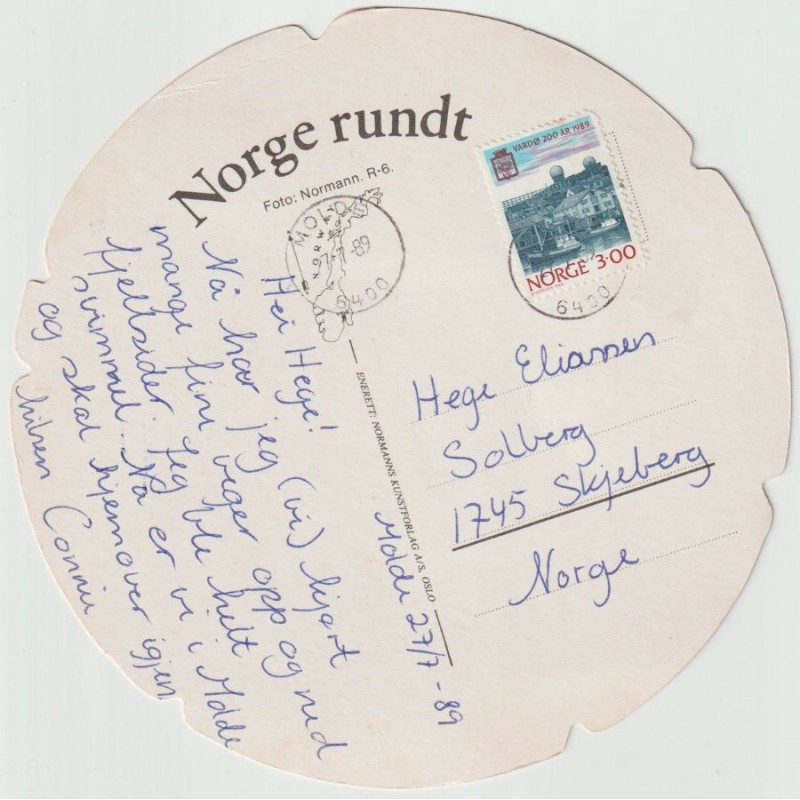 Norge rundt
Foto: Normann. R-6.
MOLDE
NORWAY
-7-89
6400
VARDØ 200 ÅR 1989
NORGE 3·00
6400
Hei Hege!
Nå har jeg (vi) kjørt
mange fine veger opp og ned
fjellsider. Jeg ble helt
svimmel. Nå er vi i Molde
og skal hjemover igjen
hilsen Connie
Molde 27/7 - 89
ENERETT: NORMANNS KUNSTFORLAG A/S, OSLO
Hege Eliassen
Solberg
1745 Skjeberg
Norge